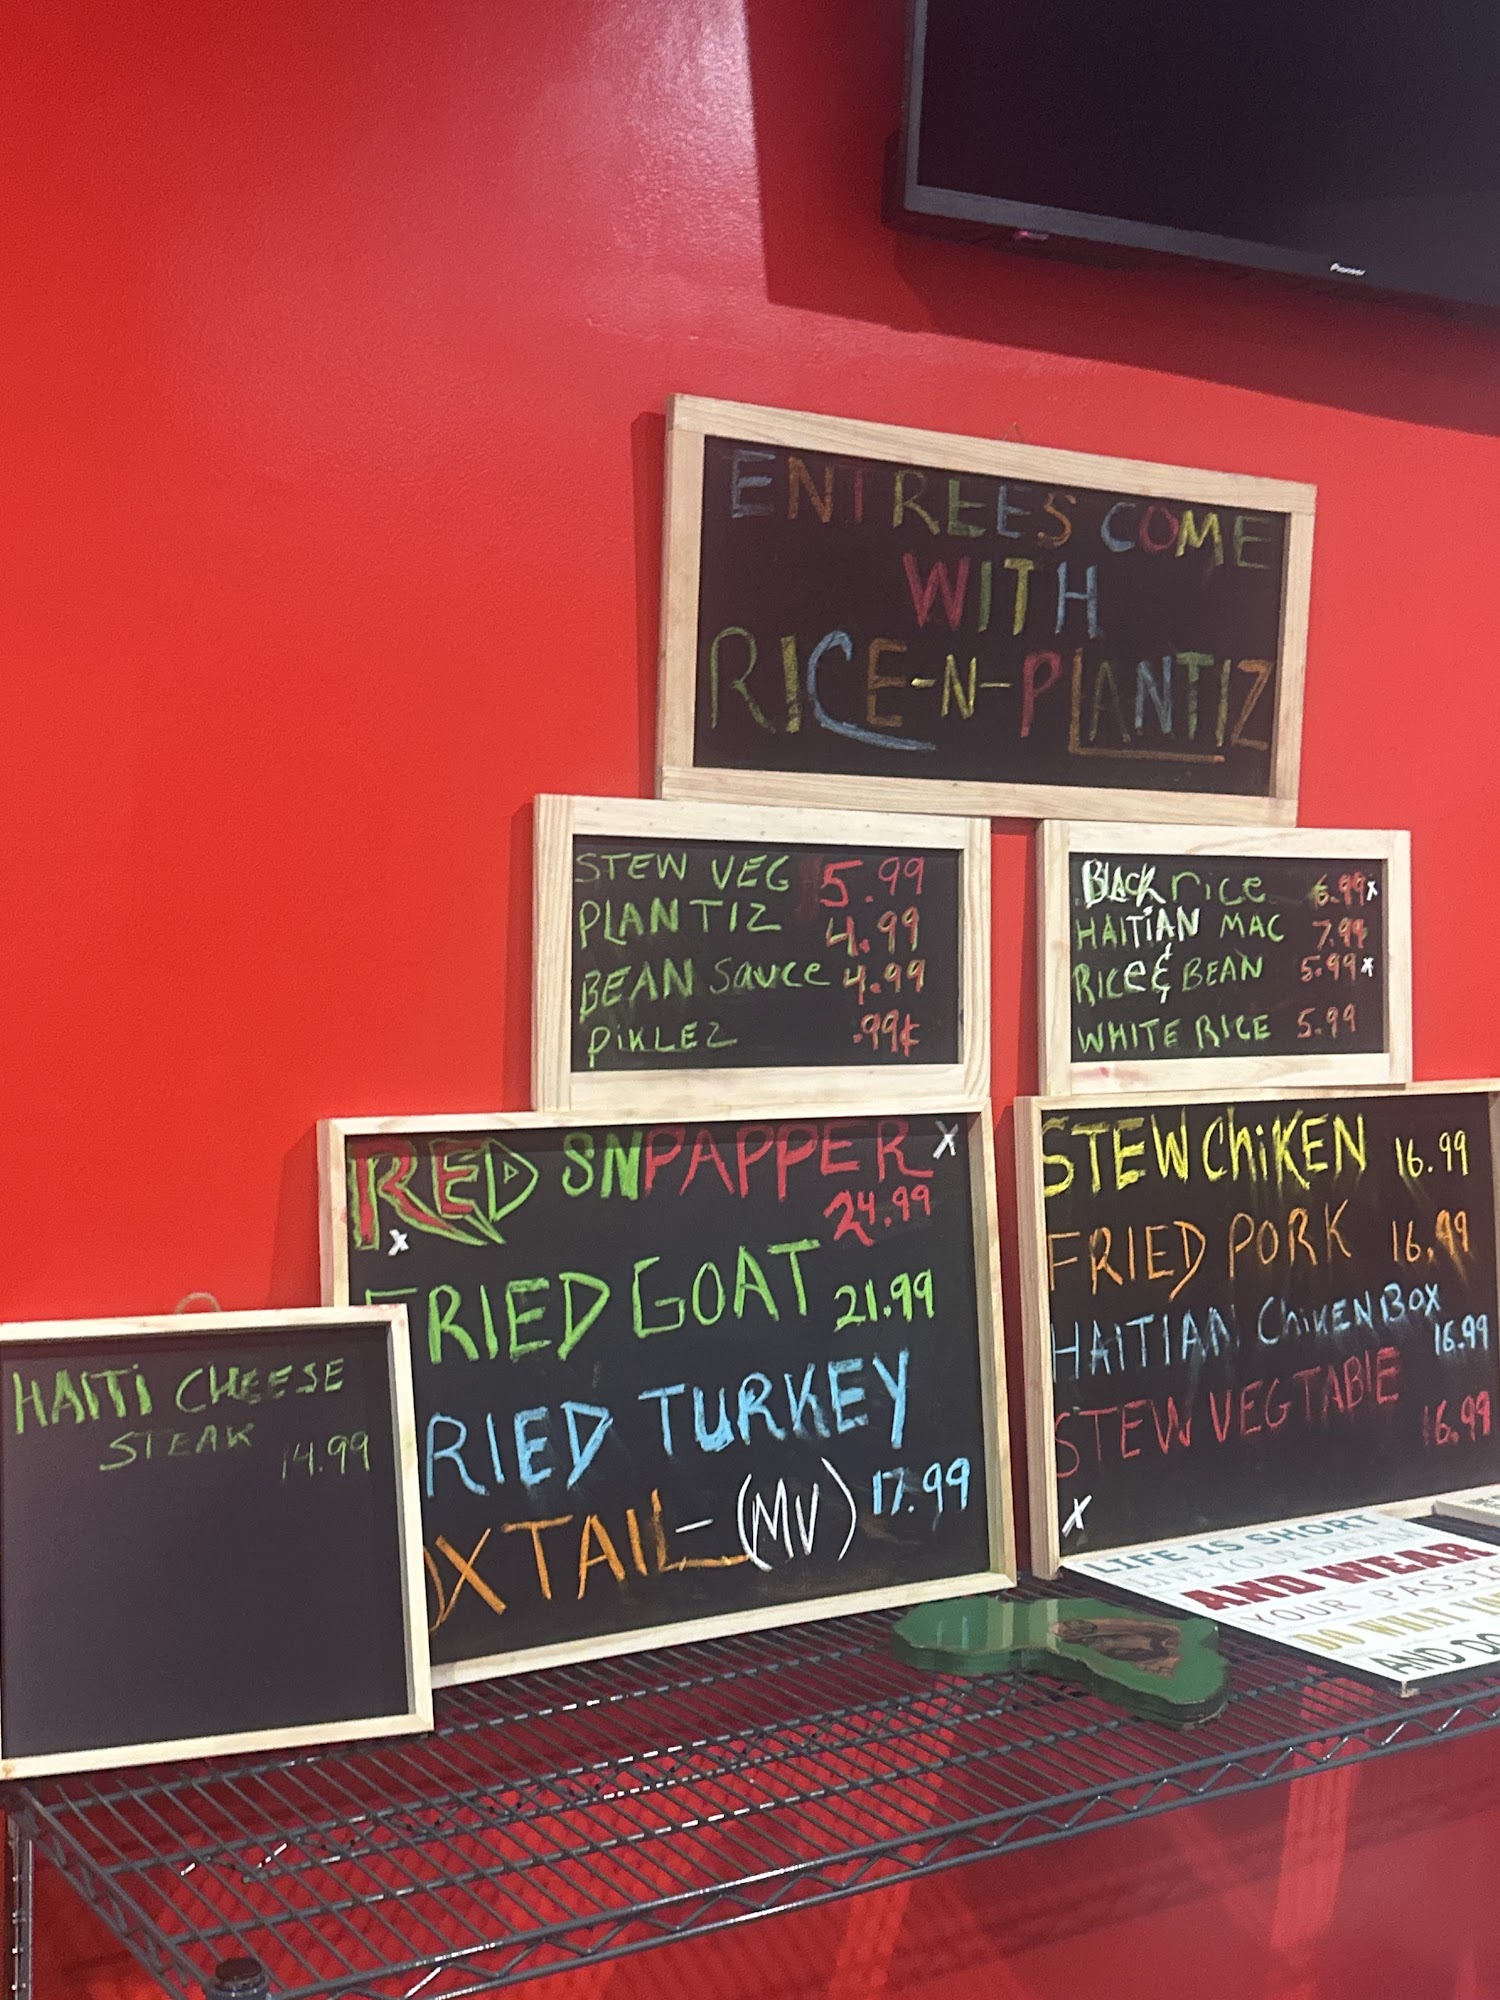 Pioneer
ENTREES COME
WITH
RICE-N-PLANTIZ
STEW VEG 5.99
PLANTIZ 4.99
BEAN SAUCE 4.99
PIKLEZ .99¢
BLACK rice 6.99x
HAITIAN MAC 7.99
RICE & BEAN 5.99x
WHITE RICE 5.99
RED SNPAPPER X
X 24.99
FRIED GOAT 21.99
RIED TURKEY
17.99
OXTAIL-(MV)
STEW ChiKEN 16.99
FRIED PORK 16.99
HAITIAN ChiKEN BOX
16.99
STEW VEGTABIE
16.99
X
HAITI CHEESE
STEAK 14.99
LIFE IS SHORT
LIVE YOUR DREAM
AND WEAR
YOUR PASSIO
DO WHAT YO
AND DO